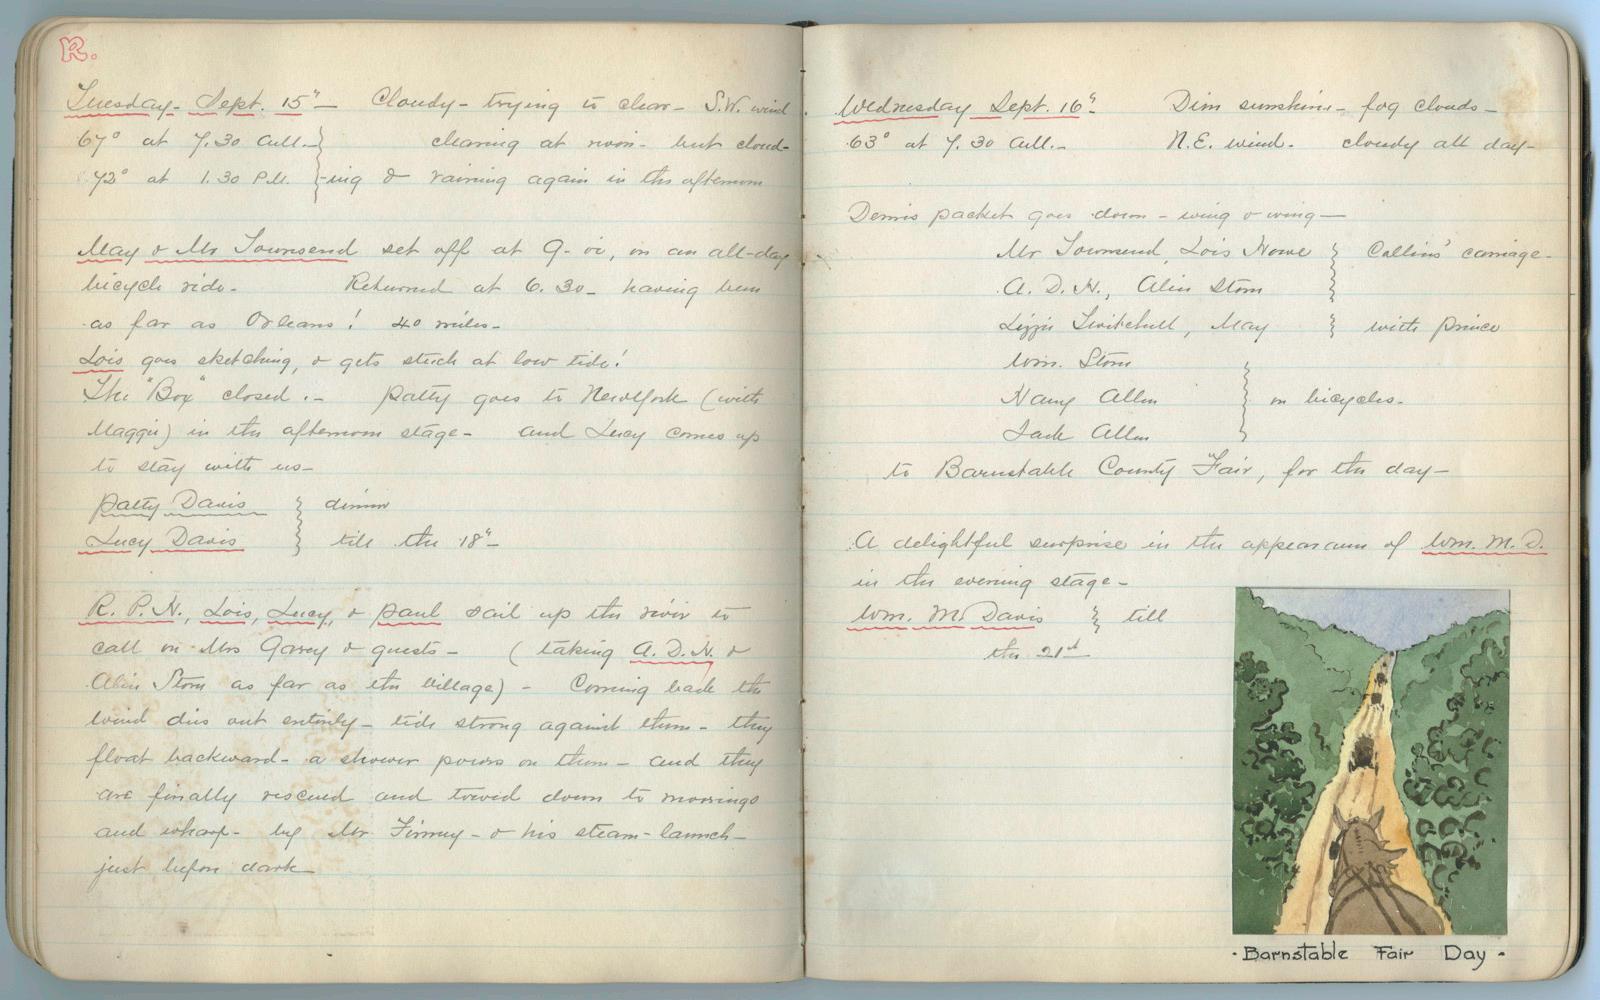 R.
Tuesday - Sept. 15" - Cloudy - trying to clear - S.W. wind
67° at 7.30 A.M. - } clearing at noon - but cloud-
72° at 1.30 P.M. } -ing & raining again in the afternoon
May & Mr Townsend set off at 9-, on an all-day
bicycle ride - Returned at 6.30 - having been
as far as Orleans! 40 miles -
Lois goes sketching, & gets stuck at low tide!
The "Box" closed. - Patty goes to New York (with
Maggie) in the afternoon stage - and Lucy comes up
to stay with us -
Patty Davis } dinner
Lucy Davis } till the 18" -
R. P. N., Lois, Lucy, & Paul sail up the river to
call on Mrs & guests - (taking A. D. N. &
Storm as far as the village) - Coming back the
wind dies out entirely - tide strong against them - they
float backward - a shower pours on them - and they
are finally rescued and towed down to moorings
and wharf - by Mr Finney - & his steam-launch -
just before dark
Wednesday Sept. 16" - Dim sunshine - fog clouds -
63° at 7.30 A.M. - N.E. wind - cloudy all day -
Dennis packet goes down - wing & wing -
Mr Townsend, Lois Howe } Collins' carriage -
A. D. N., Storm
Lizzie Twitchell, May } with Prince
Wm. Storm
Allen } on bicycles -
Jack Allen
to Barnstable County Fair, for the day -
A delightful surprise in the appearance of Wm. M. D.
in the evening stage -
Wm. M. Davis } till
the 21st
· Barnstable Fair Day ·